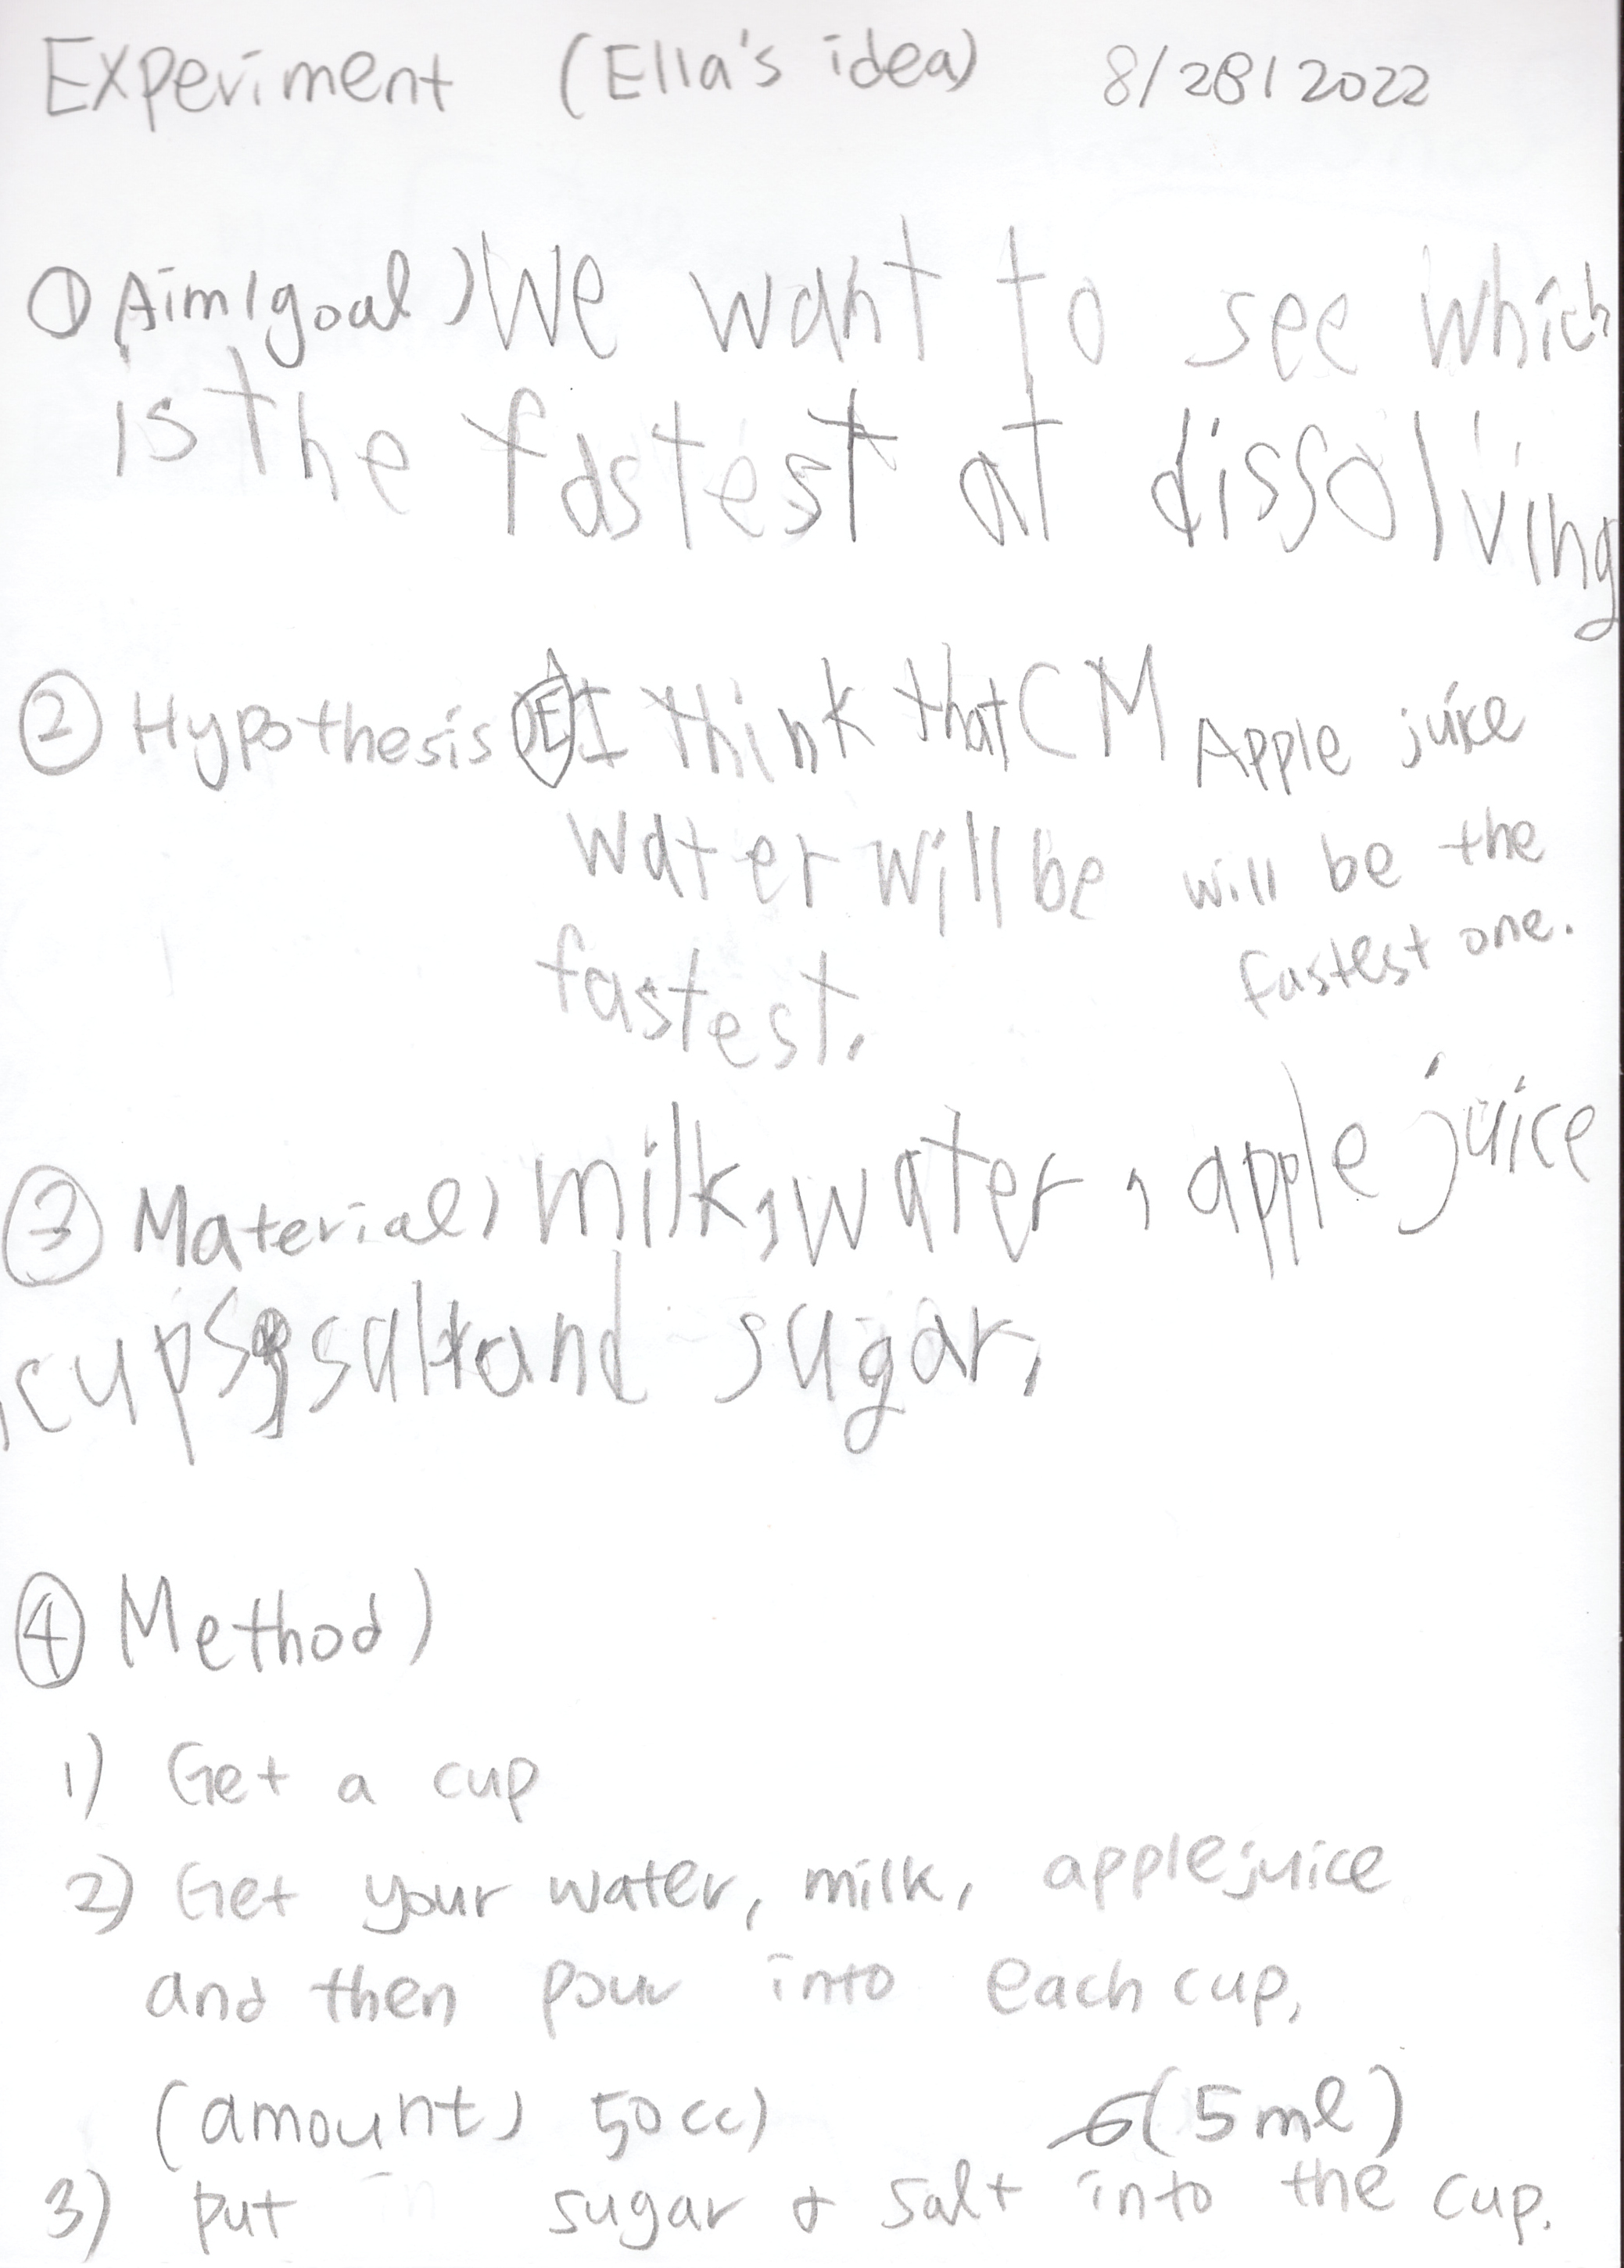 Experiment (Ella's idea) 8/28/2022
① Aim/goal) We want to see which
is the fastest at dissolving
② Hypothesis Ⓔ I think that
water will be
fastest.
M Apple juice
will be the
fastest one.
③ Material) milk, water, apple juice
, cups, salt and sugar,
④ Method)
1) Get a cup
2) Get your water, milk, apple juice
and then pour into each cup,
(amount) 50cc)
(5ml)
3) put sugar & salt into the cup.